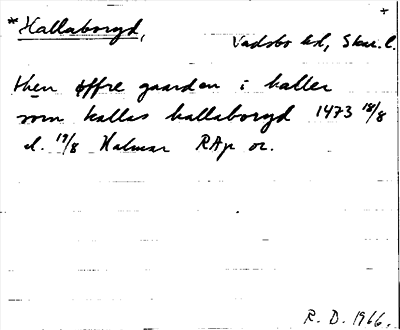 *Hallaboryd, Vadsbo hd, Skar. l.
then öffre gaarden i haller
som kallas hallaboryd 1473 18/8
el. 19/8 Kalmar RAp or.
R. D. 1966.